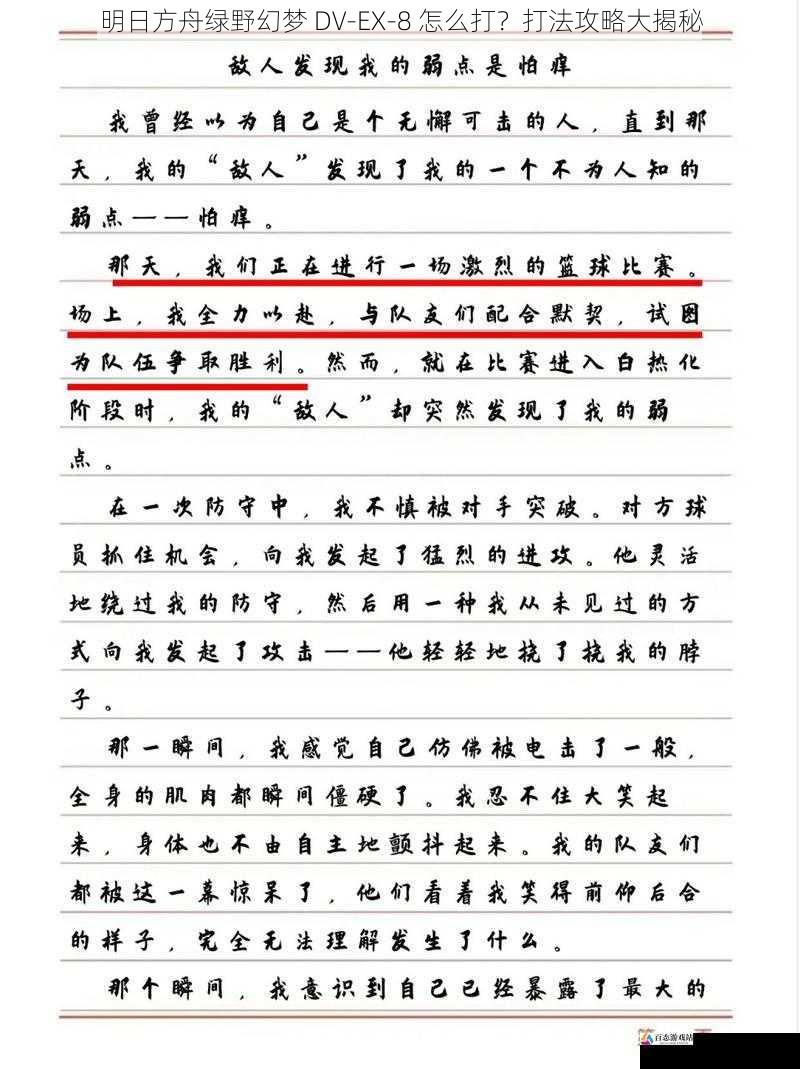 明日方舟绿野幻梦 DV-EX-8 怎么打？打法攻略大揭秘
敌人发现我的弱点是怕痒
我曾经以为自己是个无懈可击的人，直到那
天，我的“敌人”发现了我的一个不为人知的
弱点——怕痒。
那天，我们正在进行一场激烈的篮球比赛。
场上，我全力以赴，与队友们配合默契，试图
为队伍争取胜利。然而，就在比赛进入白热化
阶段时，我的“敌人”却突然发现了我的弱
点。
在一次防守中，我不慎被对手突破。对方球
员抓住机会，向我发起了猛烈的进攻。他灵活
地绕过我的防守，然后用一种我从未见过的方
式向我发起了攻击——他轻轻地挠了挠我的脖
子。
那一瞬间，我感觉自己仿佛被电击了一般，
全身的肌肉都瞬间僵硬了。我忍不住大笑起
来，身体也不由自主地颤抖起来。我的队友们
都被这一幕惊呆了，他们看着我笑得前仰后合
的样子，完全无法理解发生了什么。
那个瞬间，我意识到自己已经暴露了最大的
百态游戏站